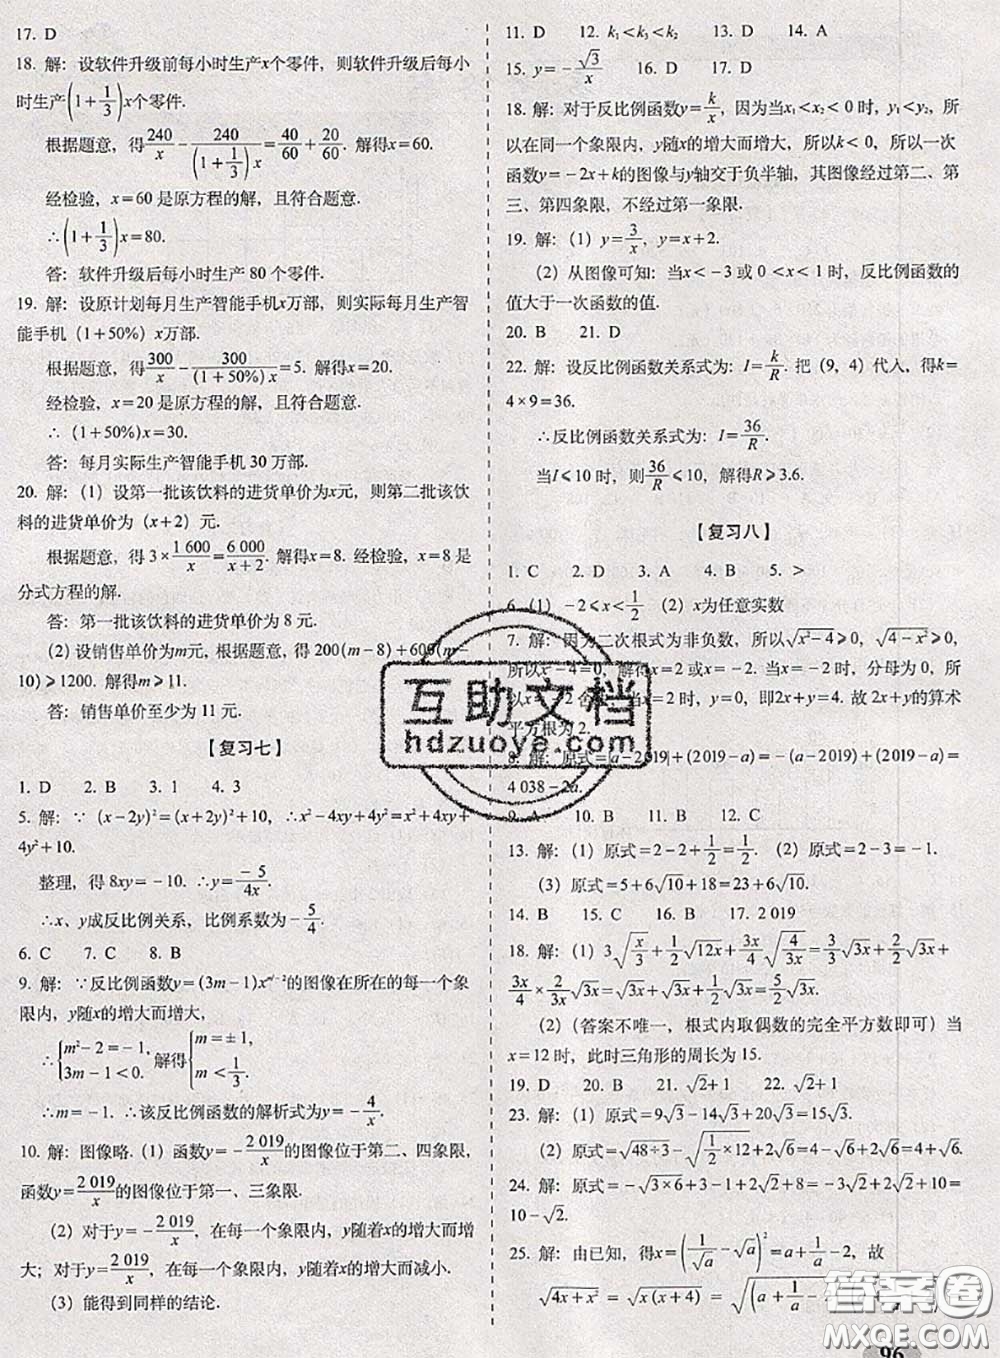 17. D
18. 解：设软件升级前每小时生产x个零件，则软件升级后每小
时生产(1+1/3)x个零件.
根据题意，得240/x - 240/((1+1/3)x) = 40/60 + 20/60. 解得x=60.
经检验，x=60是原方程的解，且符合题意.
∴(1+1/3)x=80.
答：软件升级后每小时生产 80 个零件.
19. 解：设原计划每月生产智能手机x万部，则实际每月生产智
能手机（1+50%）x万部.
根据题意，得300/x - 300/((1+50%)x) = 5. 解得x=20.
经检验，x=20是原方程的解，且符合题意.
∴（1+50%)x=30.
答：每月实际生产智能手机 30 万部.
20. 解：（1）设第一批该饮料的进货单价为x元，则第二批该饮
料的进货单价为（x+2）元.
根据题意，得 3×1 600/x = 6 000/(x+2). 解得x=8. 经检验，x=8是
分式方程的解.
答：第一批该饮料的进货单价为 8 元.
(2) 设销售单价为m元，根据题意，得 200(m-8)+600(m-
10)≥1200. 解得m≥11.
答：销售单价至少为 11 元.
【复习七】
1. D 2. B 3. 1 4. 3
5. 解：∵ (x-2y)²=(x+2y)²+10, ∴x²-4xy+4y²=x²+4xy+
4y²+10.
整理，得 8xy=-10. ∴y=-5/4x.
∴x、y成反比例关系，比例系数为-5/4.
6. C 7. C 8. B
9. 解：∵反比例函数y=(3m-1)x^(m²-2)的图像在所在的每一个象
限内，y随x的增大而增大，
∴{m²-2=-1, 3m-1<0. 解得{m=±1, m<1/3.
∴m=-1. ∴该反比例函数的解析式为y=-4/x.
10. 解：图像略. (1) 函数y=-2 019/x的图像位于第二、四象限，
函数y=2 019/x的图像位于第一、三象限.
(2) 对于y=-2 019/x，在每一个象限内，y随着x的增大而增
大；对于y=2 019/x，在每一个象限内，y随着x的增大而减小.
(3) 能得到同样的结论.
11. D 12. k₁<k₃<k₂ 13. D 14. A
15. y=-√3/x 16. D 17. D
18. 解：对于反比例函数y=k/x，因为当x₁<x₂<0 时，y₁<y₂，所
以在同一个象限内，y随x的增大而增大，所以k<0，所以一次
函数y=-2x+k的图像与y轴交于负半轴，其图像经过第二、第
三、第四象限，不经过第一象限.
19. 解：（1）y=3/x，y=x+2.
（2）从图像可知：当x<-3或 0<x<1时，反比例函数的
值大于一次函数的值.
20. B 21. D
22. 解：设反比例函数关系式为：I=k/R. 把（9，4）代入，得k=
4×9=36.
∴反比例函数关系式为：I=36/R.
当I≤10 时，则36/R≤10，解得R≥3.6.
【复习八】
1. C 2. D 3. A 4. B 5. >
6.（1）-2≤x<1/2 （2）x为任意实数
7. 解：因为二次根式为非负数，所以√(x²-4)≥0，√(4-x²)≥0，
所以x²-4=0，解得x=2 或x=-2. 当x=-2时，分母为 0，所
以x=-2 舍去. 当x=2时，y=0，即2x+y=4. 故 2x+y的算术
平方根为 2.
8. 解：原式=|a-2019|+(2019-a)=-(a-2019)+(2019-a)=
4 038-2a.
9. A 10. B 11. B 12. C
13. 解：（1）原式=2-2+1/2=1/2. （2）原式=2-3=-1.
（3）原式=5+6√10+18=23+6√10.
14. B 15. C 16. B 17. 2 019
18. 解：（1）3√(x/3)+1/2√(12x)+3x/4√(4/(3x))=3/3√(3x)+2/2√(3x)+
3x/4×2/(3x)√(3x)=√(3x)+√(3x)+1/2√(3x)=5/2√(3x).
（2）（答案不唯一，根式内取偶数的完全平方数即可）当
x=12时，此时三角形的周长为 15.
19. D 20. B 21. √2+1 22. √2+1
23. 解：（1）原式=9√3-14√3+20√3=15√3.
（2）原式=√(48÷3)-√(1/2×12)+2√6=4-√6+2√6=4+√6.
24. 解：原式=-√(3×6)+3-1+8-2√2+√2=-3√2+2√2=
10-√2.
25. 解：由已知，得x=(1/√a-√a)²=a+1/a-2，故
√(4x+x²)=√(x(x+4))=√((a+1/a-
互助文档
hdzuoye.com
答案圈
MXQE.COM
96